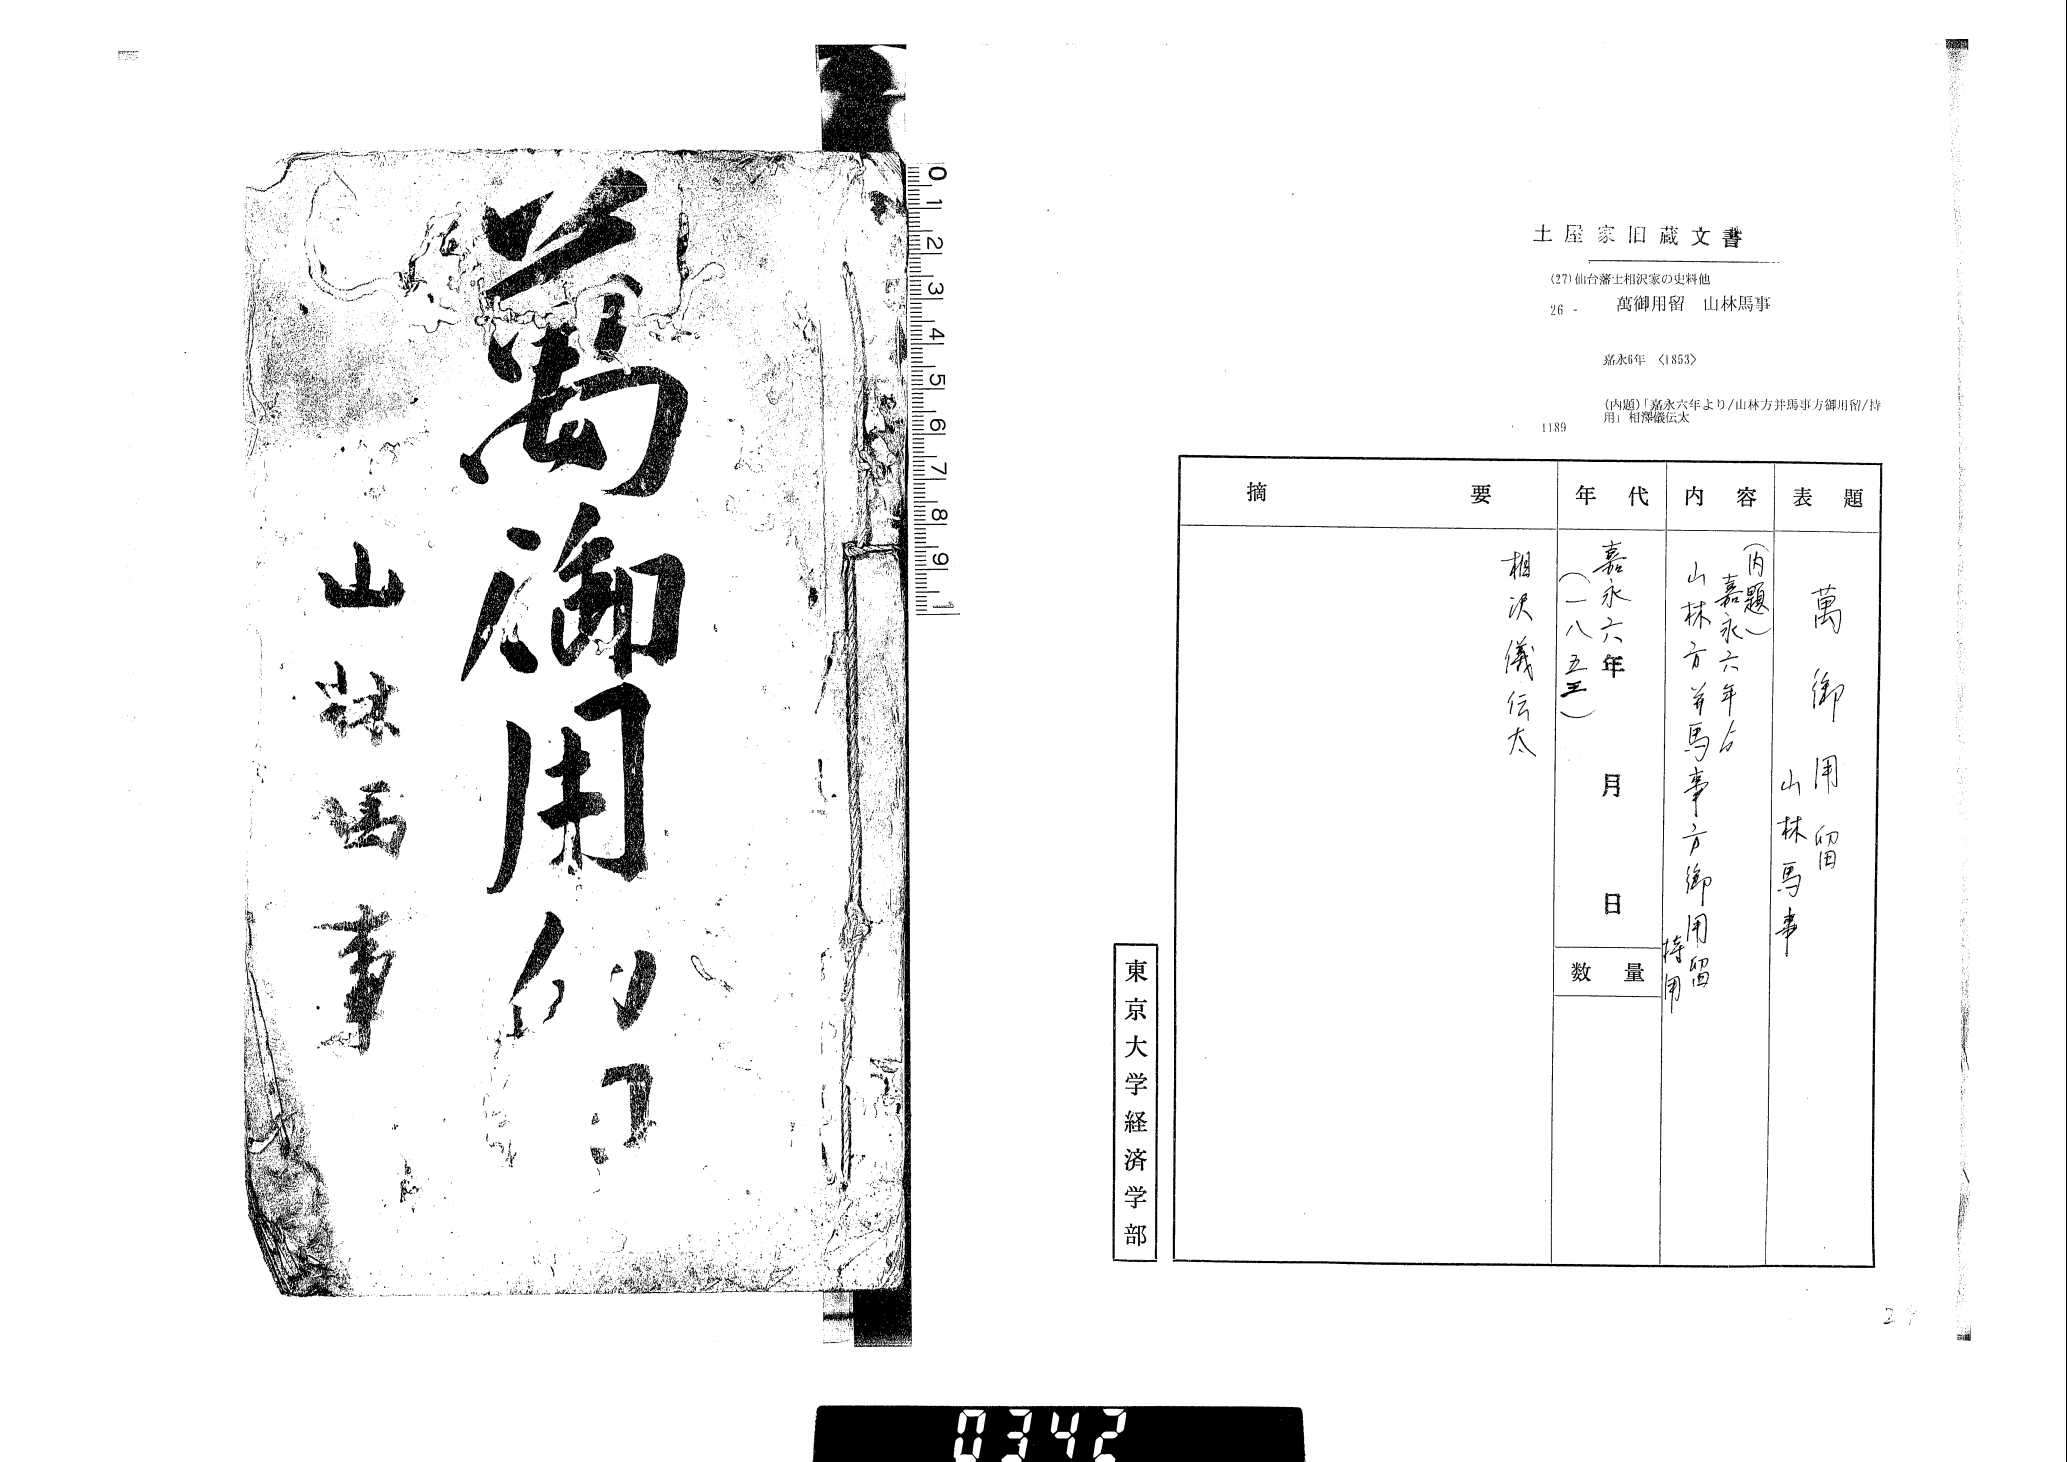 土屋家旧蔵文書
(27)仙台藩士相沢家の史料他
26 - 萬御用留 山林馬事
嘉永6年 〈1853〉
(内題)「嘉永六年より/山林方并馬事方御用留/持
用」相澤儀伝太
1189
表題
萬御用留
山林馬事
内容
(内題)
嘉永六年ゟ
山林方并馬事方御用留
持用
年代
嘉永六年 月 日
(一八五三)
数量
摘要
相沢儀伝太
東京大学経済学部
萬御用留
山林馬事
0 1 2 3 4 5 6 7 8 9 1
0342